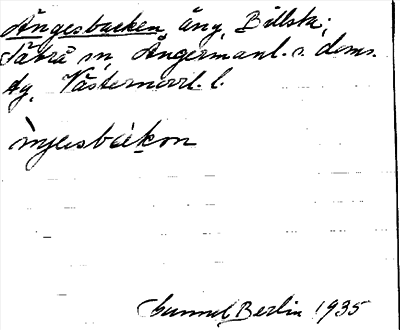 Ängesbacken, äng, Billsta;
Såbrå sn, Ångermanl. s. doms.
dg, Västernorrl. l.
ìŋesbàkon
Gunnel Berlin 1935